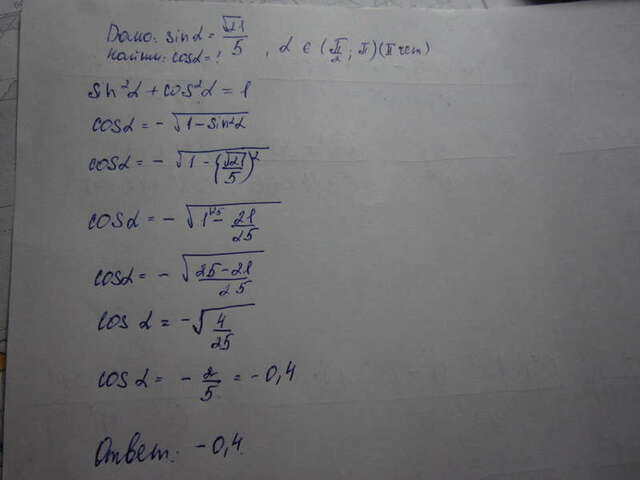 Дано: sinα = √21/5, α ∈ (π/2; π) (II чет)
Найти: cosα = ?
sin²α + cos²α = 1
cosα = - √(1 - sin²α)
cosα = - √(1 - (√21/5)²)
cosα = - √(1²⁵ - 21/25)
cosα = - √((25 - 21)/25)
cos α = - √(4/25)
cos α = - 2/5 = -0,4
Ответ: -0,4